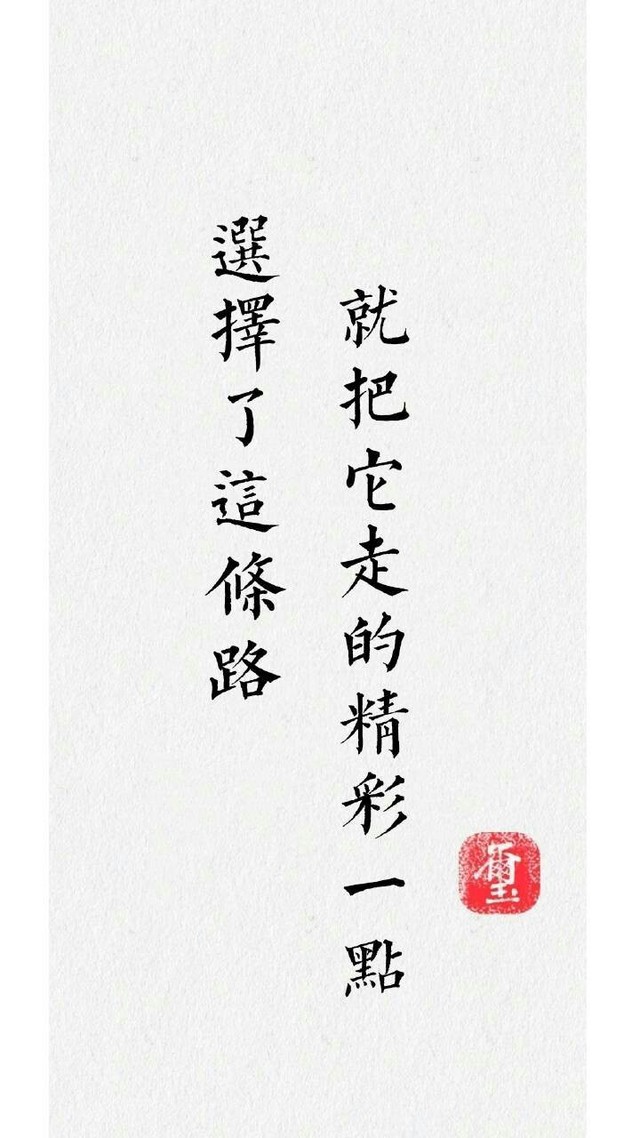 選擇了這條路
就把它走的精彩一點